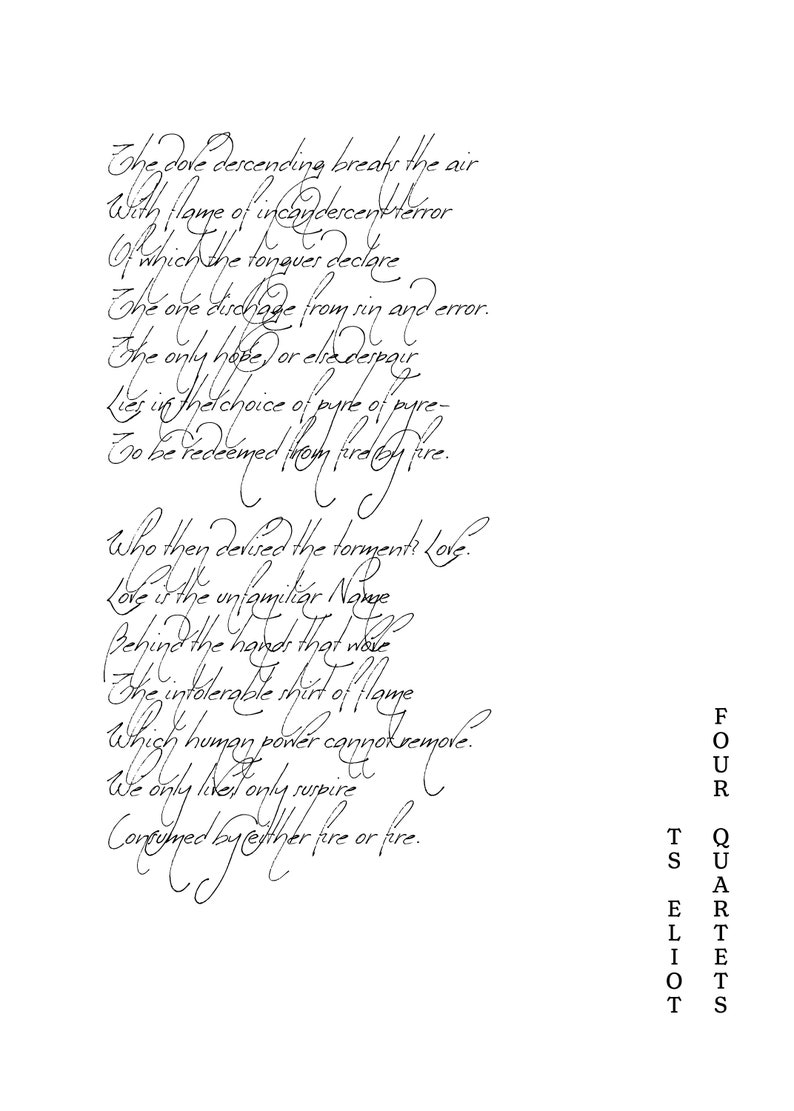 The dove descending breaks the air
With flame of incandescent terror
Of which the tongues declare
The one dischage from sin and error.
The only hope, or else despair
Lies in the choice of pyre of pyre-
To be redeemed from fire by fire.
Who then devised the torment? Love.
Love is the unfamiliar Name
Behind the hands that wove
The intolerable shirt of flame
Which human power cannot remove.
We only live, only suspire
Consumed by either fire or fire.
FOUR QUARTETS
TS ELIOT